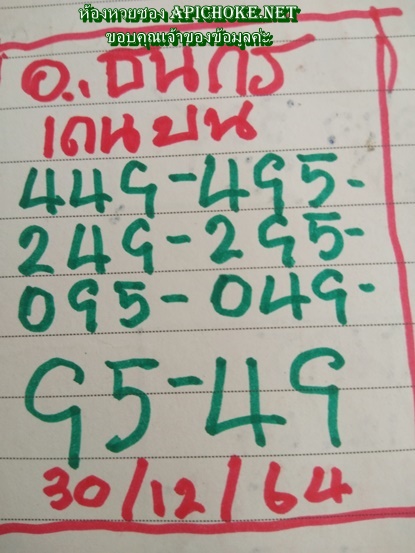 ห้องหายซอง APICHOKE.NET
ขอบคุณเจ้าของข้อมูลค่ะ
อ., ธนกร
เดนบน
449-495-
249-295-
095-049-
95-49
30/12/64